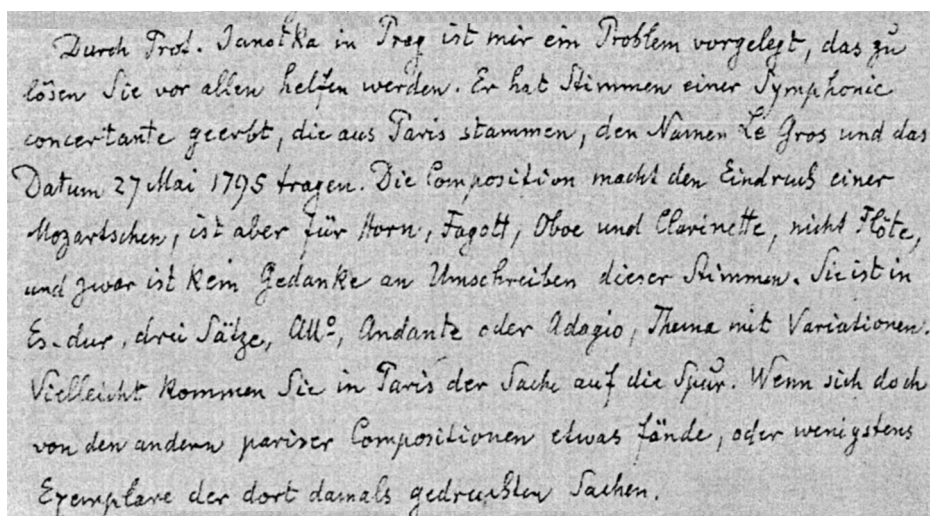 Durch Prof. Janotka in Prag ist mir ein Problem vorgelegt, das zu
lösen Sie vor allen helfen werden. Er hat Stimmen einer Symphonie
concertante geerbt, die aus Paris stammen, den Namen Le Gros und das
Datum 27 Mai 1795 tragen. Die Composition macht den Eindruck einer
Mozartschen, ist aber für Horn, Fagott, Oboe und Clarinette, nicht Flöte,
und zwar ist kein Gedanke an Umschreiben dieser Stimmen. Sie ist in
Es-dur, drei Sätze, Allo, Andante oder Adagio, Thema mit Variationen.
Vielleicht kommen Sie in Paris der Sache auf die Spur. Wenn sich doch
von den andern pariser Compositionen etwas fände, oder wenigstens
Exemplare der dort damals gedruckten Sachen.